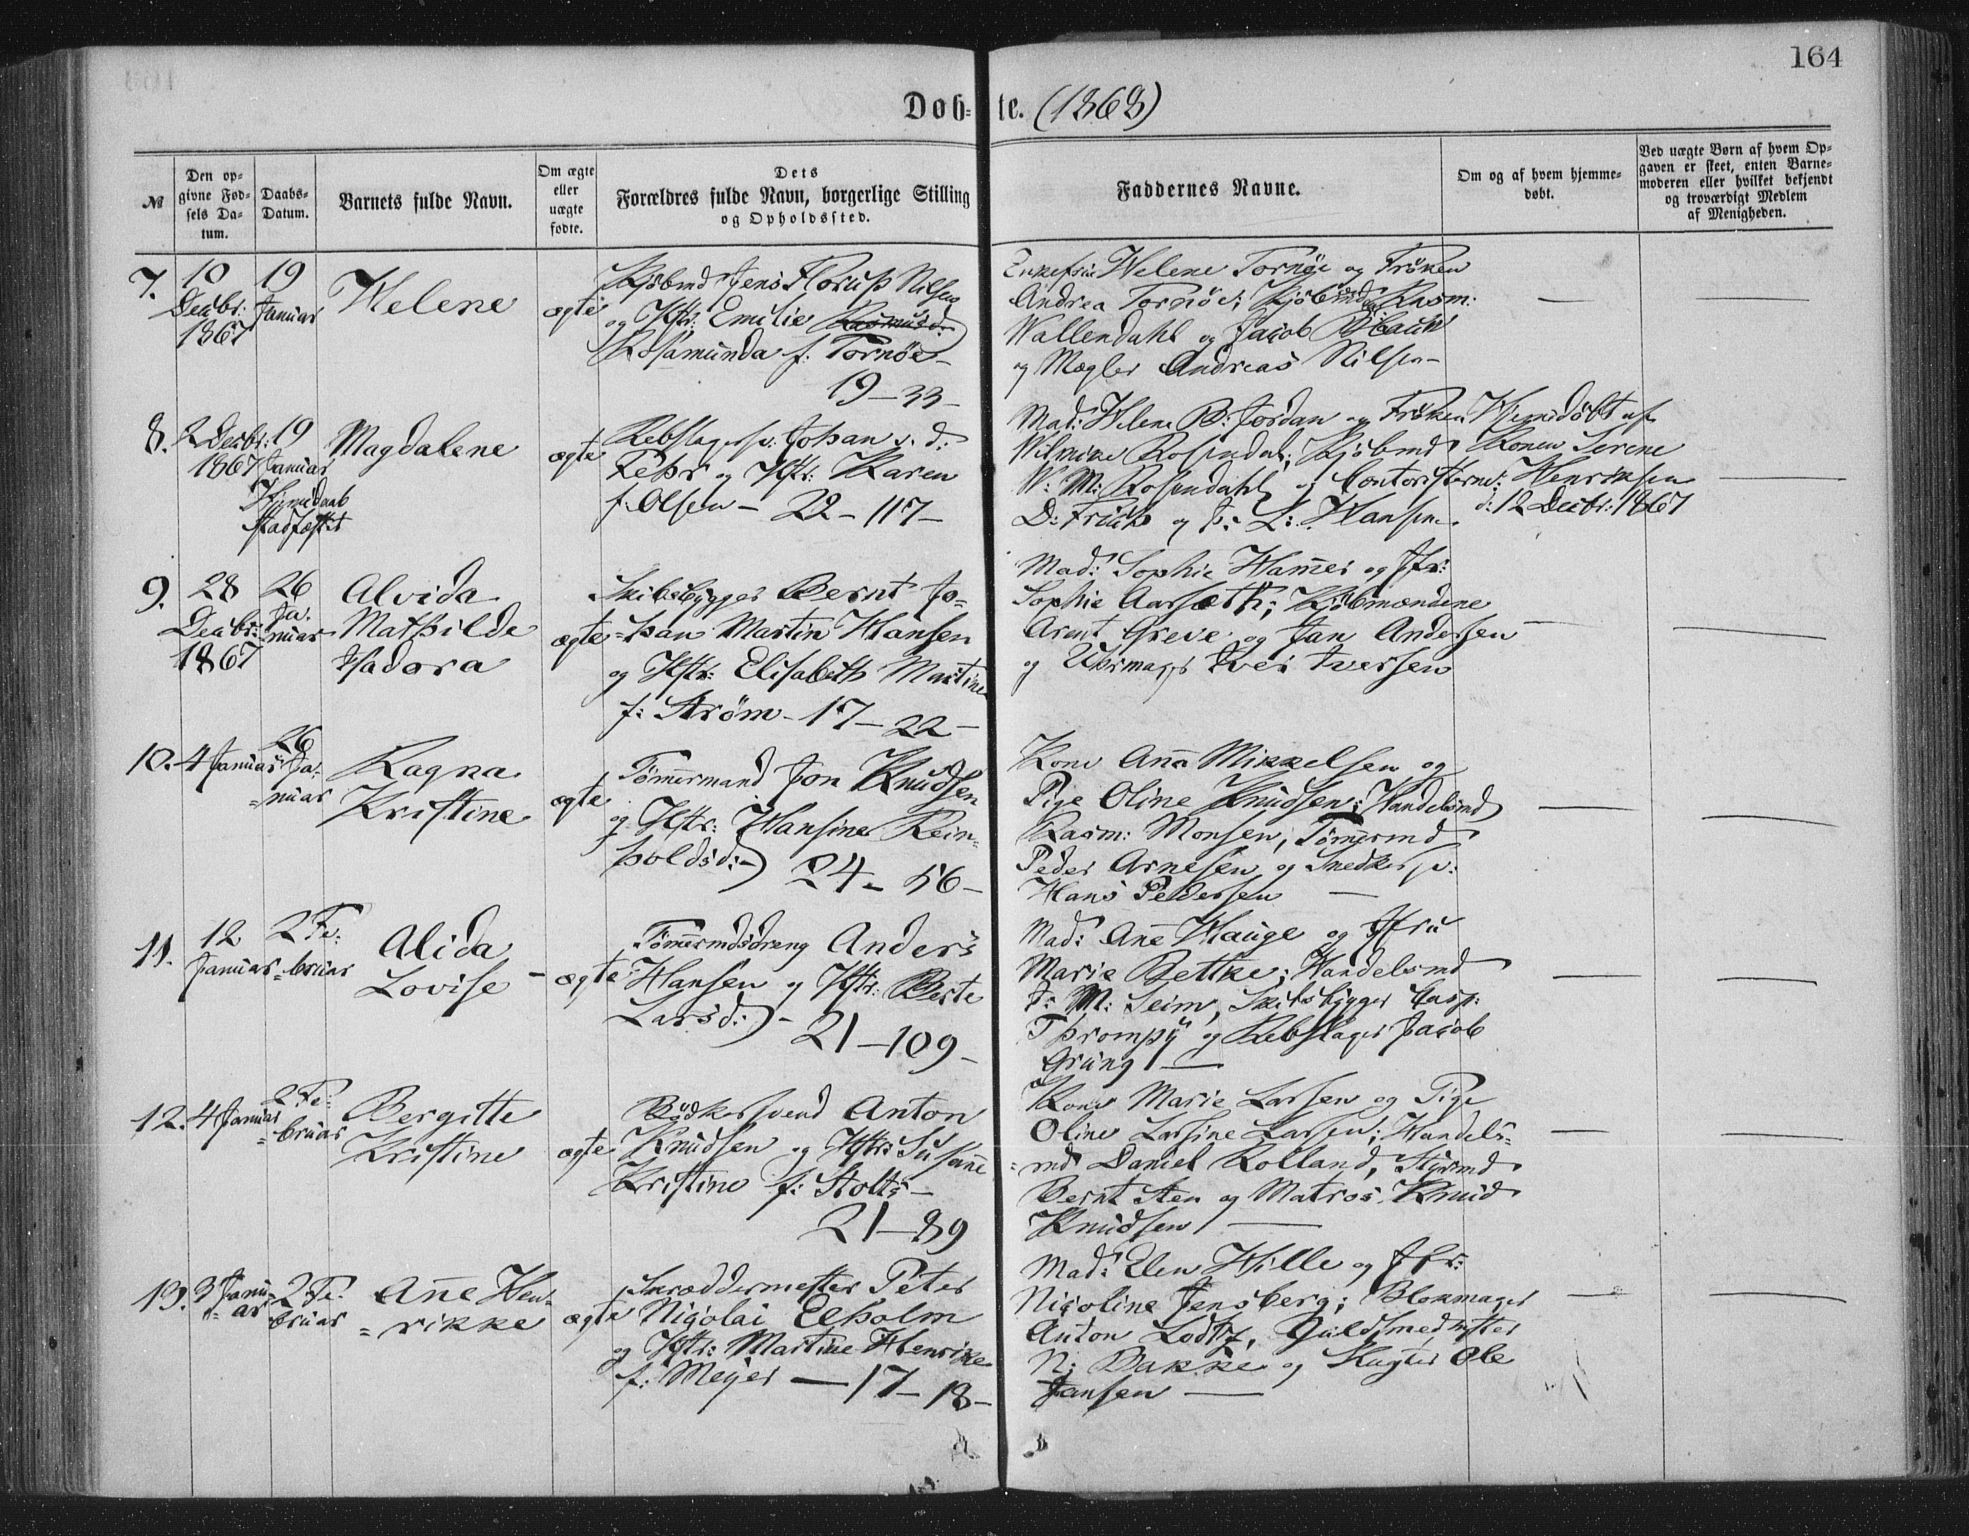 164
Døb- te. (1868)
№
Den op-
givne Fød-
sels Da-
tum.
Daabs-
Datum.
Barnets fulde Navn.
Om ægte
eller
uægte
fødte.
Dets
Forældres fulde Navn, borgerlige Stilling
og Opholdssted.
Faddernes Navne.
Om og af hvem hjemme-
døbt.
Ved uægte Børn af hvem Op-
gaven er skeet, enten Barne-
moderen eller hvilket bekjendt
og troværdigt Medlem
af Menigheden.
7.
10
Decbr:
1867
19
Januar
Helene
ægte
Kjøbmd Jens Florus Nilsen
og Hstr: Emilie
Rosamunda f: Tornøe
19-33-
Enkefru Helene Tornøe og Frøken
Andrea Tornøe; Kjøbmd Rasm:
Wallendahl og Jacob
og Mægler Andreas Nilsen-
8.
2 Decbr:
1867
19
Januar
Hjemmedaab
stadfæstet
Magdalene
ægte
Rebslagersv. Johan v. d.
Fehr og Hstr: Karen
f: Olsen - 22-117-
Mad: Helene B: Jordan og Frøken
Wilmine Rosendal; Kjøbmd
W: M: Rosendahl og Contoristerne:
D: Friis og J: L: Hansen.
Hjemdøbt af
Konen Serene
Henriksen
d: 12 Decbr: 1867
9.
28
Decbr:
1867
26
Ja-
nuar
Alvida
Mathilde
Isadora
ægte
Skibsbygger Bernt Jo-
han Martin Hansen
og Hstr: Elisabeth Martine
f: Strøm - 17-22-
Mad: Sophie Ham̄er og Jfr:
Sophie Aarsæth; Kjøbmændene
Arent Greve og Jan Andersen
og Uhrmager Iver Iversen
10.
4 Januar
26
Ja-
nuar
Ragna
Kristine
ægte
Tøm̄ermand Jon Knudsen
og Hstr: Hansine Rein-
holdsd:
24-56-
Kone Ana Mikkelsen og
Pige Oline Knudsen; Handelsmd
Rasm: Monsen, Tøm̄ermd
Peder Arnesen og Snedkersv:
Hans Pedersen
11.
12
Januar
2 Fe-
bruar
Alida
Lovise
ægte
Tøm̄ermdsdreng Anders
Hansen og Hstr: Berte
Larsd: -
21-109-
Mad: An̄e Hauge og Jfru
Marie Bettke; Handelsmd
J: M: Seim, Skibsbygger Casp:
og Rebslager Jacob
Grüng
12.
4 Januar
2 Fe-
bruar
Bergitte
Kristine
ægte
Bødkersvend Anton
Knudsen og Hstr: Susan̄e
Kristine f: Stoltz-
21-89
Kone Marie Larsen og Pige
Oline Larsine Larsen; Handels-
md Daniel Rolland, Styrmd
Bernt Sten og Matros Knud
Knudsen
13.
3 Janu-
ar
2 Fe-
bruar
An̄e Hen-
rikke
ægte
Skræddermester Peter
Nicolai Elholm
og Hstr: Martine Henrikke
f: Meyer - 17-18-
Mad: Elen Hille og Jfr:
Nicoline Jensberg; Blokmager
Anton Lodtz, Guldsmedmester
N: Bakke og Ole
Jansen